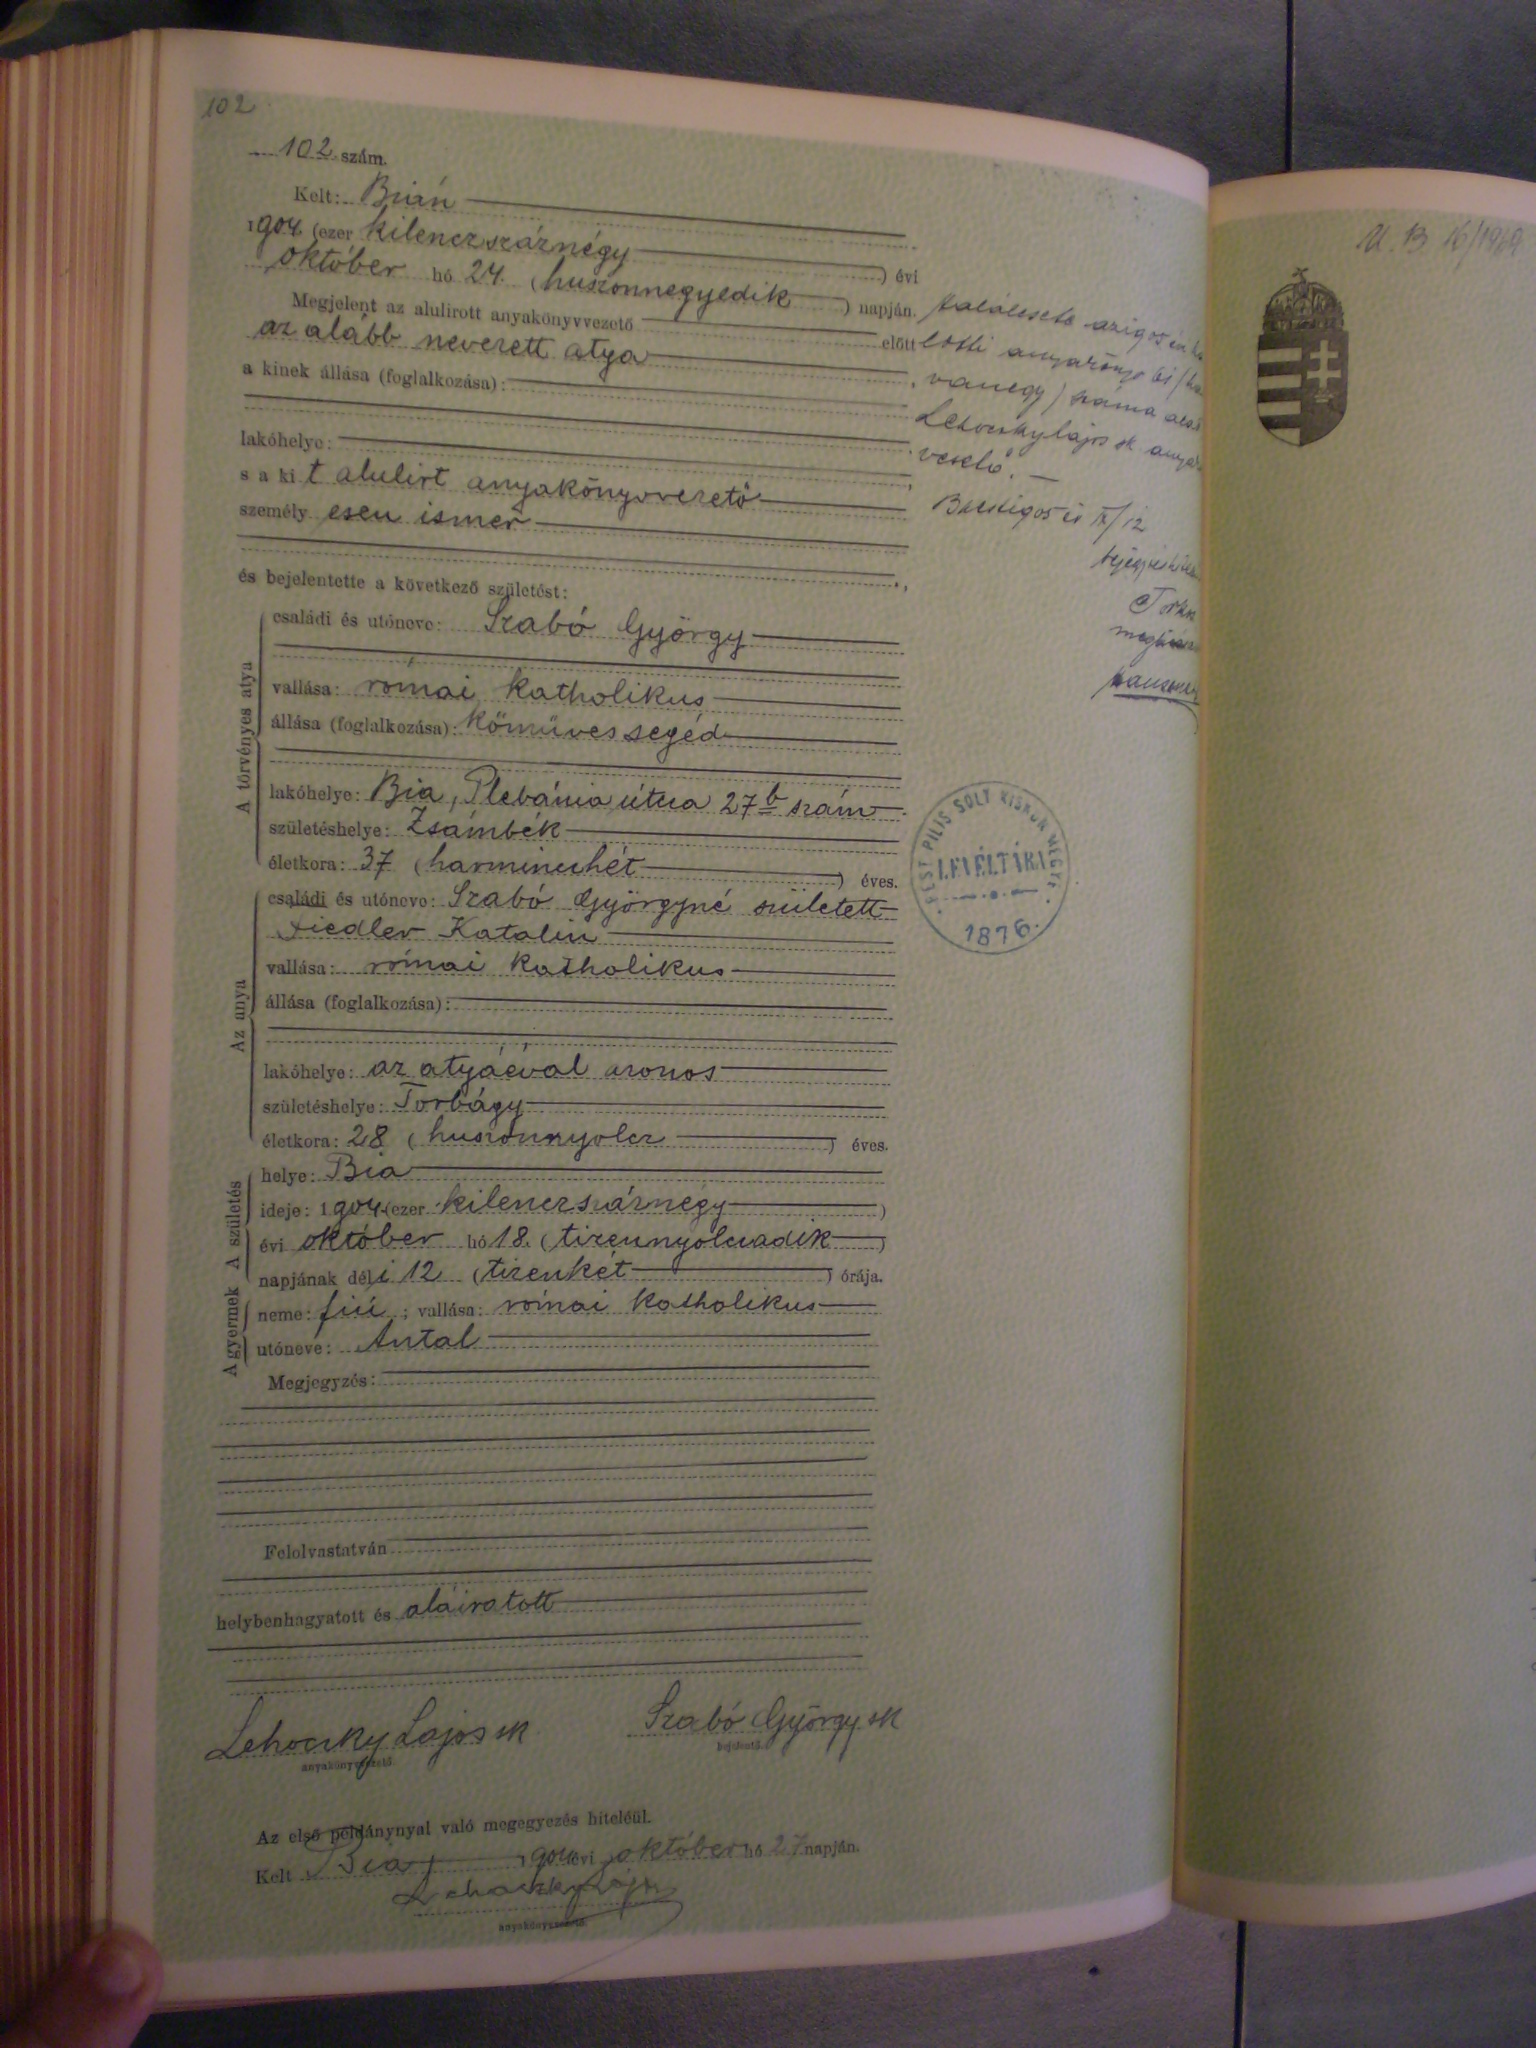 102
102 szám.
Kelt: Bián
1904. (ezer kilenczszáznégy ) évi
október hó 24. (huszonnegyedik ) napján.
Megjelent az alulirott anyakönyvvezető előtt
az alább nevezett atya
a kinek állása (foglalkozása):
lakóhelye:
s a kit alulirt anyakönyvvezető
személyesen ismer
és bejelentette a következő születést:
A törvényes atya
családi és utóneve: Szabó György
vallása: római katholikus
állása (foglalkozása): kőmüves segéd
lakóhelye: Bia, Plebánia útcza 27 b szám
születéshelye: Zsámbék
életkora: 37 (harminczhét ) éves.
Az anya
családi és utóneve: Szabó Györgyné született
Fiedler Katalin
vallása: római katholikus
állása (foglalkozása):
lakóhelye: az atyáéval azonos
születéshelye: Torbágy
életkora: 28 (huszonnyolcz ) éves.
A születés
helye: Bia
ideje: 1904. (ezer kilenczszáznégy )
évi október hó 18. (tizennyolczadik )
napjának déli 12 (tizenkét ) órája.
A gyermek
neme: fiú ; vallása: római katholikus
utóneve: Antal
Megjegyzés:
Felolvastatván
helybenhagyatott és aláiratott
Lehoczky Lajos sk
anyakönyvvezető.
Szabó György sk
bejelentő.
Az első példánynyal való megegyezés hiteléül.
Kelt Bia, 1904. évi október hó 27 napján.
Lehoczky Lajos
anyakönyvvezető.
Lehoczky Lajos sk
PEST PILIS SOLT KISKUN MEGYE
LEVÉLTÁRA
1876.
U. B. 16/1969